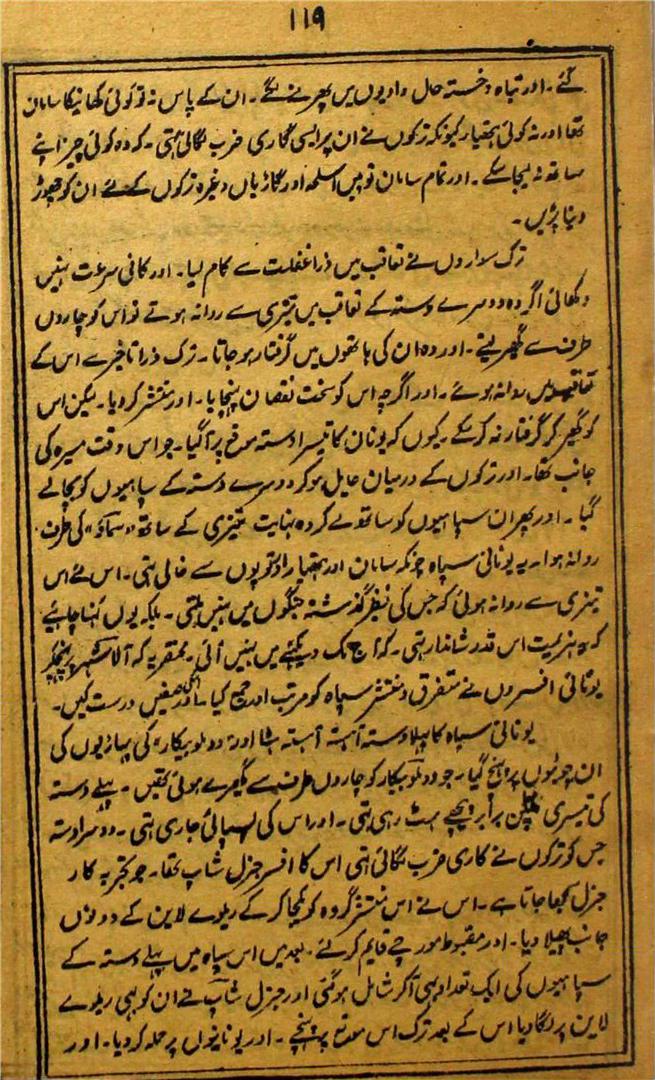 ۱۱۹
گئے۔ اور تباہ و خستہ حال وادیوں میں پھرنے لگے۔ ان کے پاس نہ تو کوئی کھانیکا سامان
تھا اور نہ کوئی ہتھیار کیونکہ ترکوں نے ان پر ایسی کاری ضرب لگائی تہی۔ کہ وہ کوئی چیز اپنے
ساتھ نہ لیجا سکے۔ اور تمام سامان توپیں اسلحہ اور گاڑیاں وغیرہ ترکوں کے لئے ان کو چھوڑ
دینا پڑیں۔
ترک سواروں نے تعاقب میں ذرا غفلت سے کام لیا۔ اور کافی سرعت نہیں
دکھائی اگر وہ دوسرے دستہ کے تعاقب میں تیزی سے روانہ ہوتے تو اس کو چاروں
طرف سے گھیر لیتے۔ اور وہ ان کی ہاتھوں میں گرفتار ہو جاتا۔ ترک ذرا تاخیر سے اس کے
تعاقب میں روانہ ہوئے۔ اور اگرچہ اس کو سخت نقصان پہنچایا۔ اور منتشر کر دیا۔ لیکن اس
کو گھیر کر گرفتار نہ کر سکے۔ کیوں کہ یونان کا تیسرا دستہ موقع پر آ گیا۔ جو اس وقت میسرہ کی
جانب تھا۔ اور ترکوں کے درمیان حایل ہو کر دوسرے دستہ کے سپاہیوں کو بچا لے
گیا۔ اور پھر ان سپاہیوں کو ساتھ لے کر وہ نہایت تیزی کے ساتھ کی طرف
روانہ ہوا۔ یہ یونانی سپاہ چونکہ سامان اور ہتھیار اور توپوں سے خالی تہی۔ اس لئے اس
تیزی سے روانہ ہوئی کہ جس کی نظیر گذشتہ جنگوں میں نہیں ملتی۔ بلکہ یوں کہنا چاہئے
کہ یہ ہزیمت اس قدر شاندار تہی۔ کہ آج تک دیکھنے میں نہیں آئی۔ مختصر یہ کہ پہنچکر
یونانی افسروں نے متفرق و منتشر سپاہ کو مرتب اور جمع کیا۔ اور صفیں درست کیں۔
یونانی سپاہ کا پہلا دستہ آہستہ آہستہ ہٹا اور "دوملو بیکار" کی پہاڑیوں کی
ان چوٹیوں پر پہنچ گیا۔ جو دوملو بیکار کو چاروں طرف سے گھیرے ہوئی تھیں۔ پہلے دستہ
کی تیسری پلٹن برابر پیچھے ہٹ رہی تہی۔ اور اس کی پسپائی جاری تہی۔ دوسرا دستہ
جس کو ترکوں نے کاری ضرب لگائی تہی اس کا افسر جنرل شاپ تھا۔ جو تجربہ کار
جنرل سمجھا جاتا ہے۔ اس نے اس منتشر گروہ کو یکجا کر کے ریلوے لاین کے دونوں
جانب پھیلا دیا۔ اور مضبوط مورچے قایم کر لئے۔ بعد میں اس سپاہ میں پہلے دستہ کے
سپاہیوں کی ایک تعداد بہی آ کر شامل ہو گئی اور جنرل شاپ نے ان کو بہی ریلوے
لاین پر لگا دیا اس کے بعد ترک اس موقع پر پہنچے۔ اور یونانیوں پر حملہ کر دیا۔ اور